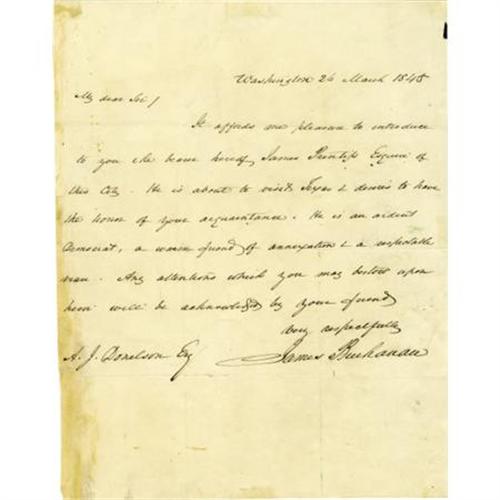 Washington 26 March 1845
My dear Sir/
It affords me pleasure to introduce
to you the bearer hereof, James Prentiss Esquire of
this City. He is about to visit Texas & desires to have
the honor of your acquaintance. He is an ardent
Democrat, a warm friend of annexation & a respectable
man. Any attentions which you may bestow upon
him will be acknowledged by your friend
very respectfully
James Buchanan
A. J. Donelson Esq